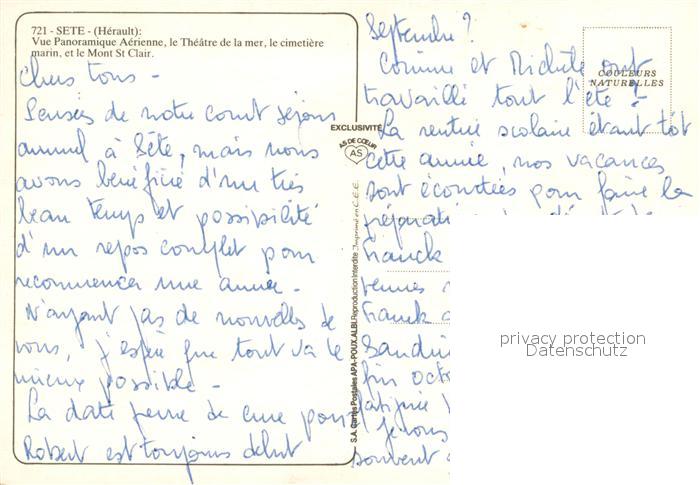 721 - SETE - (Hérault):
Vue Panoramique Aérienne, le Théâtre de la mer, le cimetière
marin, et le Mont St Clair.
Chers tous -
Pensées de notre court séjour
annuel à Sète, mais nous
avons bénéficié d'un très
beau temps et possibilité
d'un repos complet pour
recommencer une année.
N'ayant pas de nouvelles de
vous, j'espère que tout va le
mieux possible -
La date ferme de cure pour
Robert est toujours début
EXCLUSIVITÉ
AS DE CŒUR
AS
S.A. Cartes Postales APA-POUX, ALBI Reproduction Interdite Imprimé en C.E.E.
COULEURS
NATURELLES
Septembre ?
Corinne et Michèle ont
travaillé tout l'été !
La rentrée scolaire étant tôt
cette année, nos vacances
sont écourtées pour faire la
Franck
Franck
fin oct
Je vous
souvent
privacy protection
Datenschutz